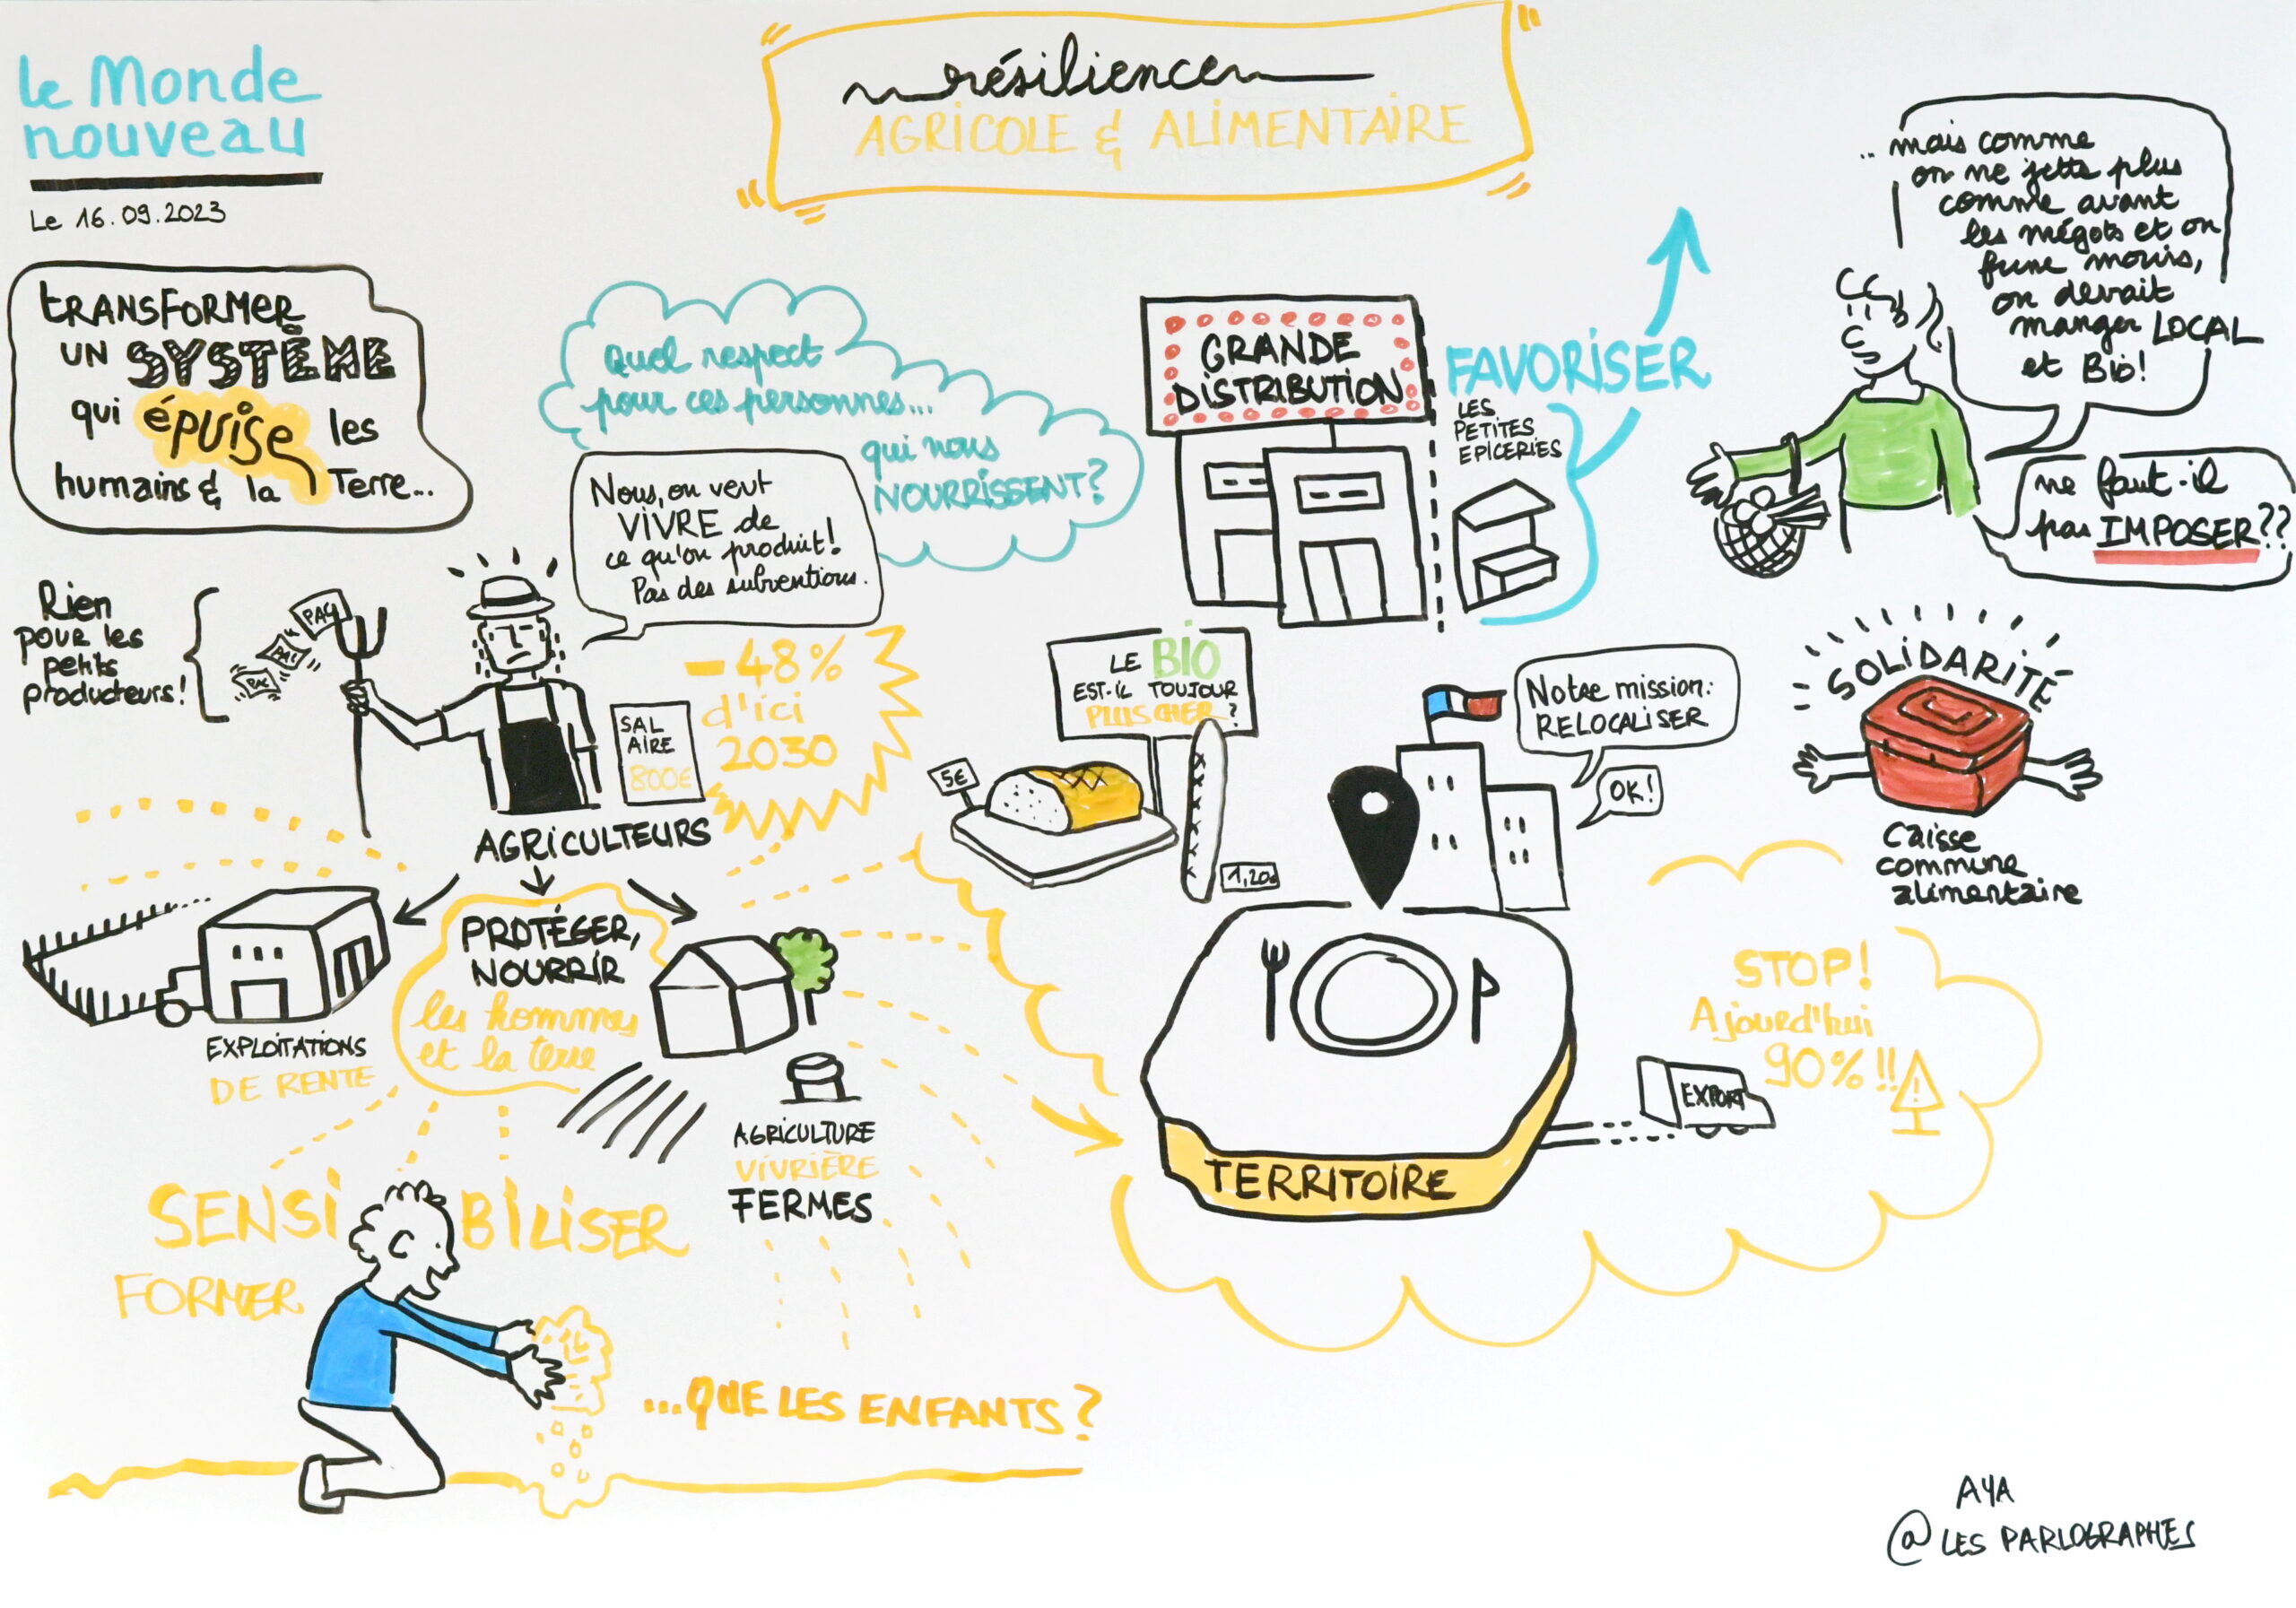 le Monde
nouveau
Le 16.09.2023
résilience
AGRICOLE & ALIMENTAIRE
tRANSFORMER
UN SYSTÈME
qui épuise les
humains & la Terre...
Quel respect
pour ces personnes...
qui nous
NOURRISSENT?
Nous, on veut
VIVRE de
ce qu'on produit!
Pas des subventions.
Rien
pour les
petits
producteurs!
PAC
PAC
PAC
SAL
AIRE
800€
-48%
d'ici
2030
AGRICULTEURS
EXPLOITATIONS
DE RENTE
PROTÉGER,
NOURRIR
les hommes
et la terre
AGRICULTURE
VIVRIÈRE
FERMES
SENSIBILISER
FORMER
...QUE LES ENFANTS?
GRANDE
DISTRIBUTION
FAVORISER
LES
PETITES
EPICERIES
..mais comme
on ne jette plus
comme avant
les mégots et on
fume moins,
on devait
manger LOCAL
et Bio!
ne faut-il
pas IMPOSER??
LE BIO
EST-IL TOUJOUR
PLUS CHER?
5€
1,20€
Notre mission:
RELOCALISER
OK!
SOLIDARITÉ
Caisse
commune
alimentaire
TERRITOIRE
EXPORT
STOP!
Ajourd'hui
90%!!
AYA
@LES PARLOGRAPHES